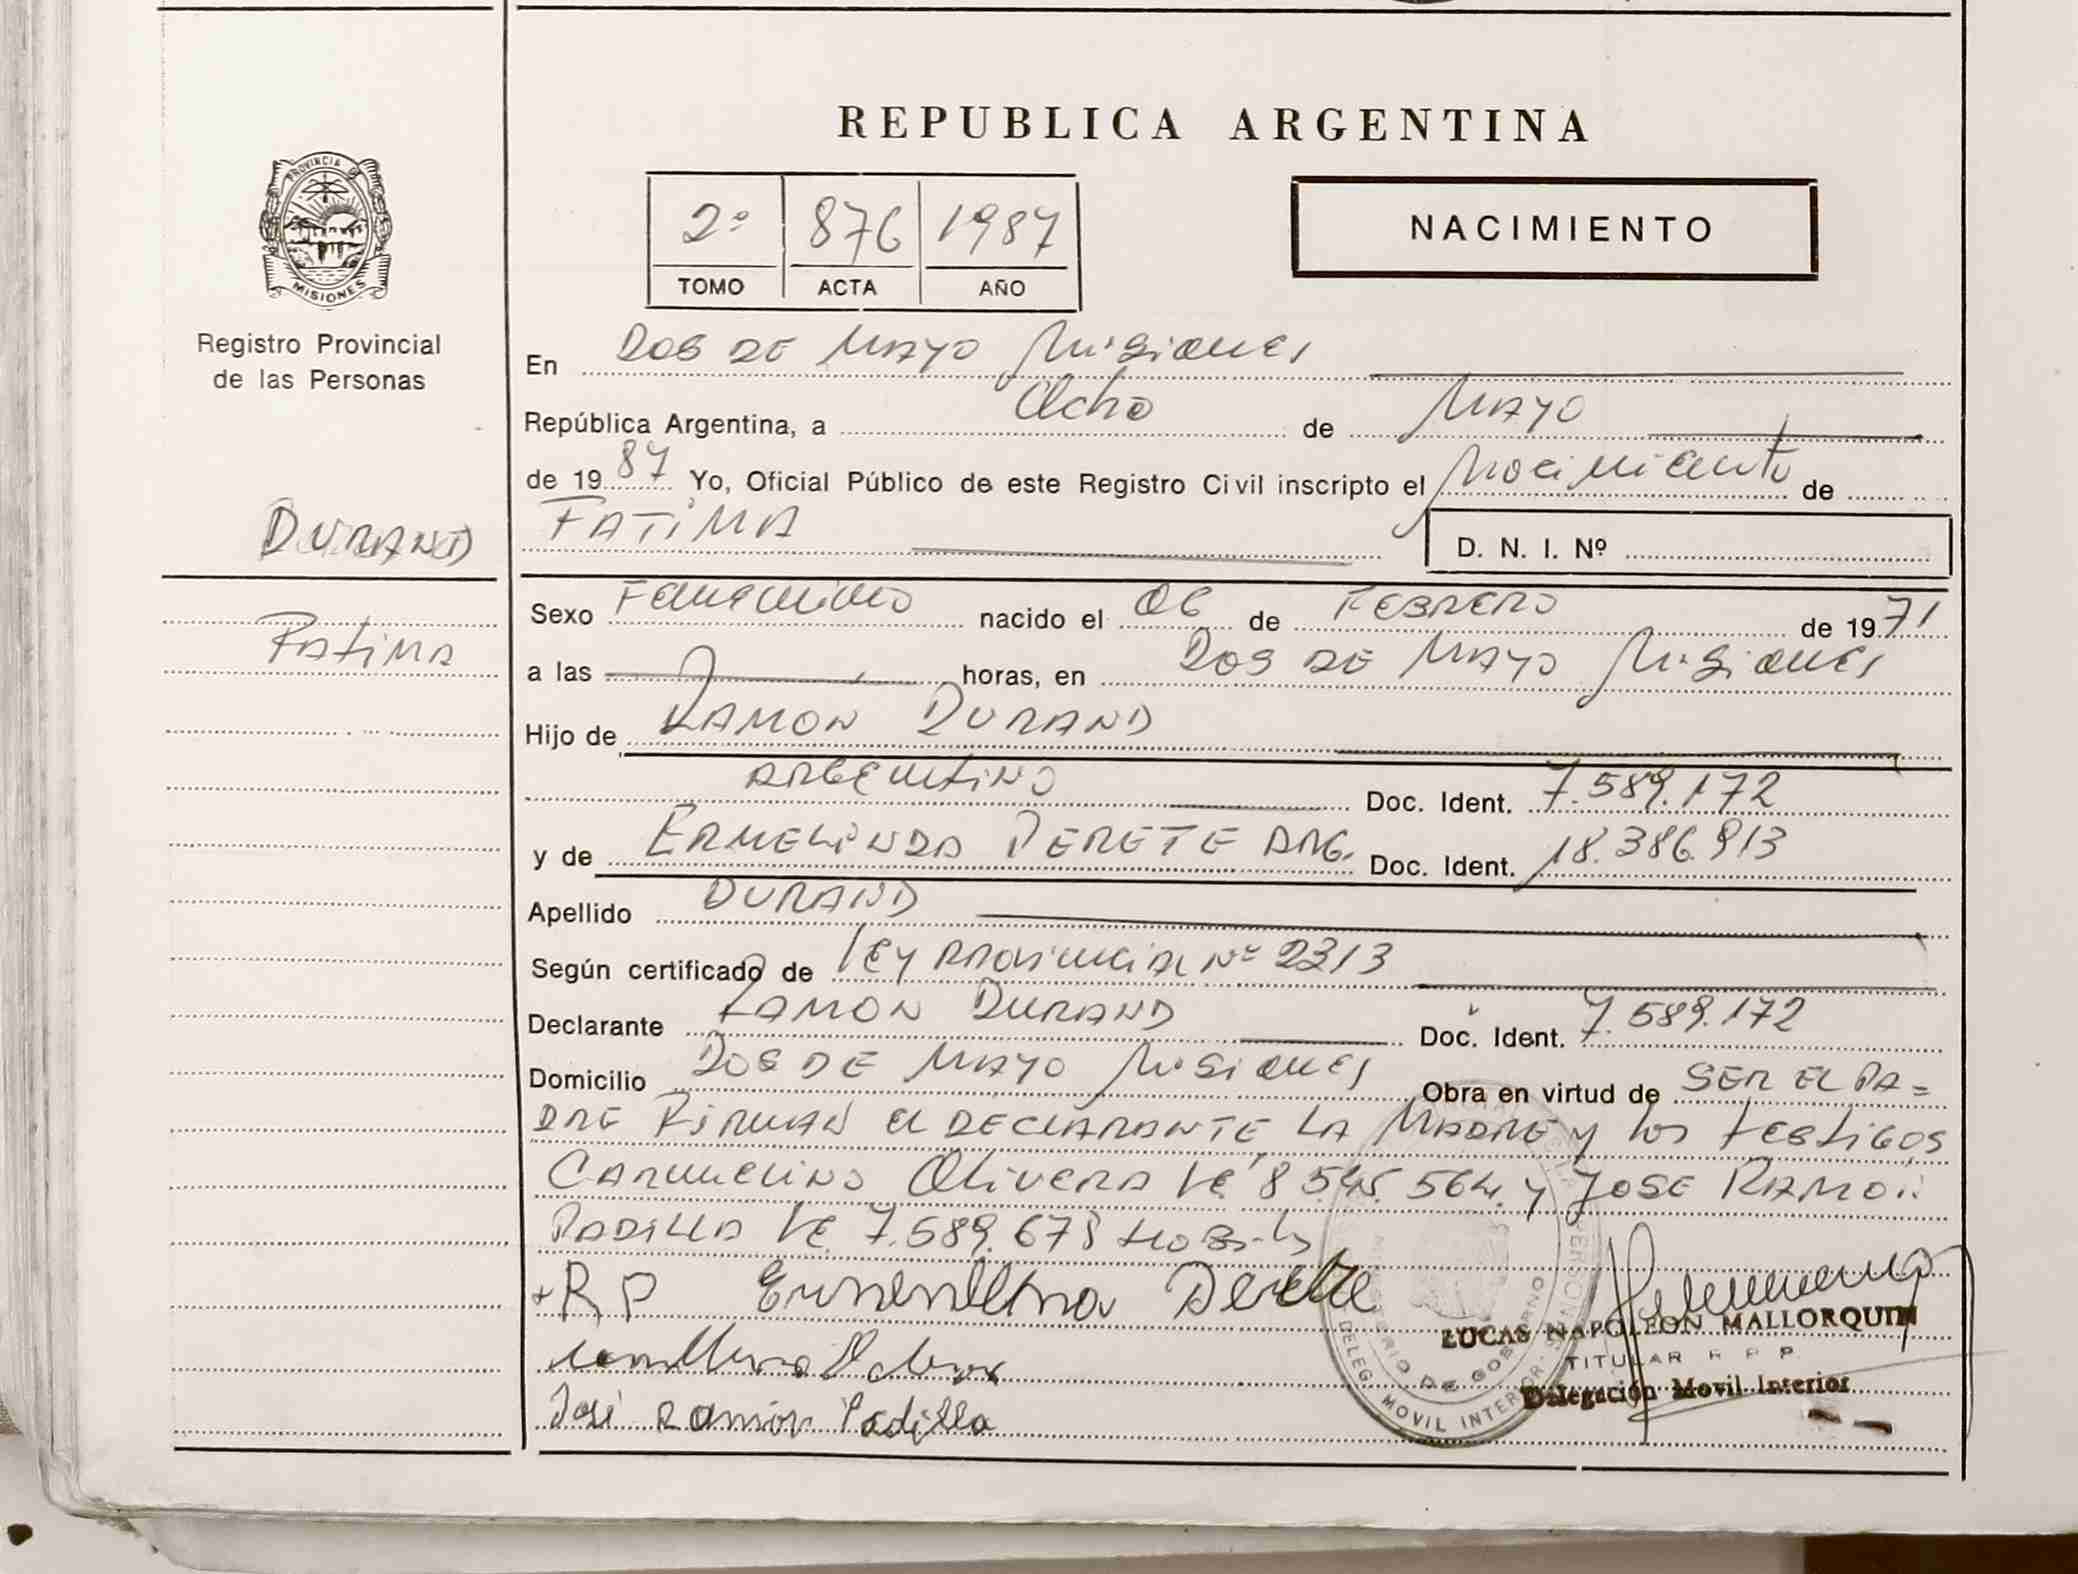 REPUBLICA ARGENTINA
PROVINCIA DE
MISIONES
Registro Provincial
de las Personas
2º 876 1987
TOMO ACTA AÑO
NACIMIENTO
En DOS DE MAYO Misiones
República Argentina, a Ocho de MAYO
de 1987 Yo, Oficial Público de este Registro Civil inscripto el Nacimiento de
DURAND
FATIMA
D. N. I. Nº
Fatima
Sexo Femenino nacido el 06 de FEBRERO de 1971
a las horas, en DOS DE MAYO Misiones
Hijo de RAMON DURAND
ARGENTINO Doc. Ident. 7.589.172
y de ERMELINDA PERETE ARG. Doc. Ident. 18.386.913
Apellido DURAND
Según certificado de LEY PROVINCIAL Nº 2313
Declarante RAMON DURAND Doc. Ident. 7.589.172
Domicilio DOS DE MAYO Misiones Obra en virtud de SER EL PA=
DRE FIRMAN el DECLARANTE, LA MADRE y los testigos
CARMELINO Olivera LE 8.545.564. y JOSE RAMON
PADILLA LE 7.589.678
+ RP
José Ramón Padilla
LUCAS NAPOLEON MALLORQUIN
TITULAR R P P
Delegación Movil Interior
MINISTERIO DE GOBIERNO
DELEG. MOVIL INTERIOR